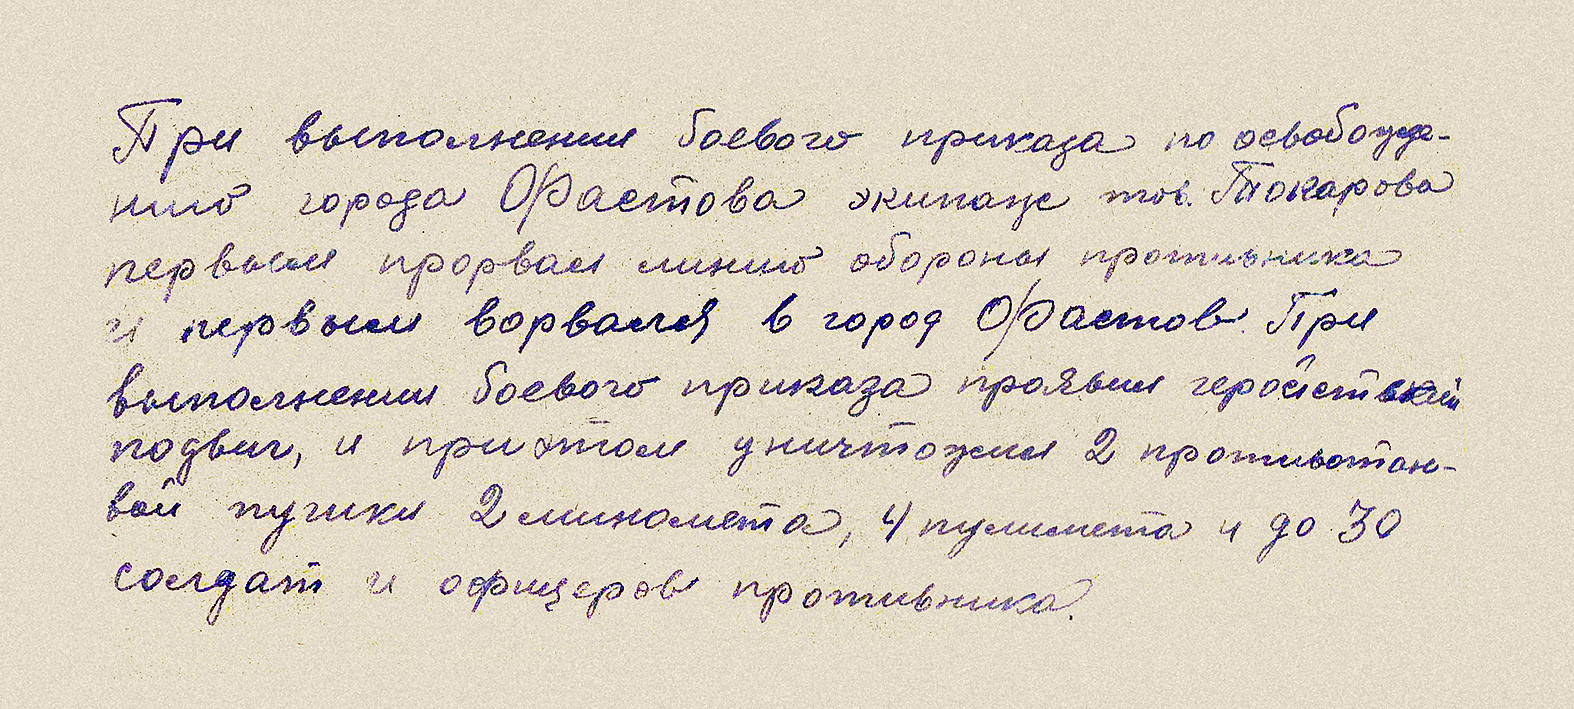 При выполнении боевого приказа по освобожде-
нию города Фастова экипаж тов. Токарова
первым прорвал линию обороны противника
и первым ворвался в город Фастов. При
выполнении боевого приказа проявил геройский
подвиг, и при этом уничтожил 2 противотан-
вой пушки 2 миномета, 4 пулимета и до 30
солдат и офицеров противника.